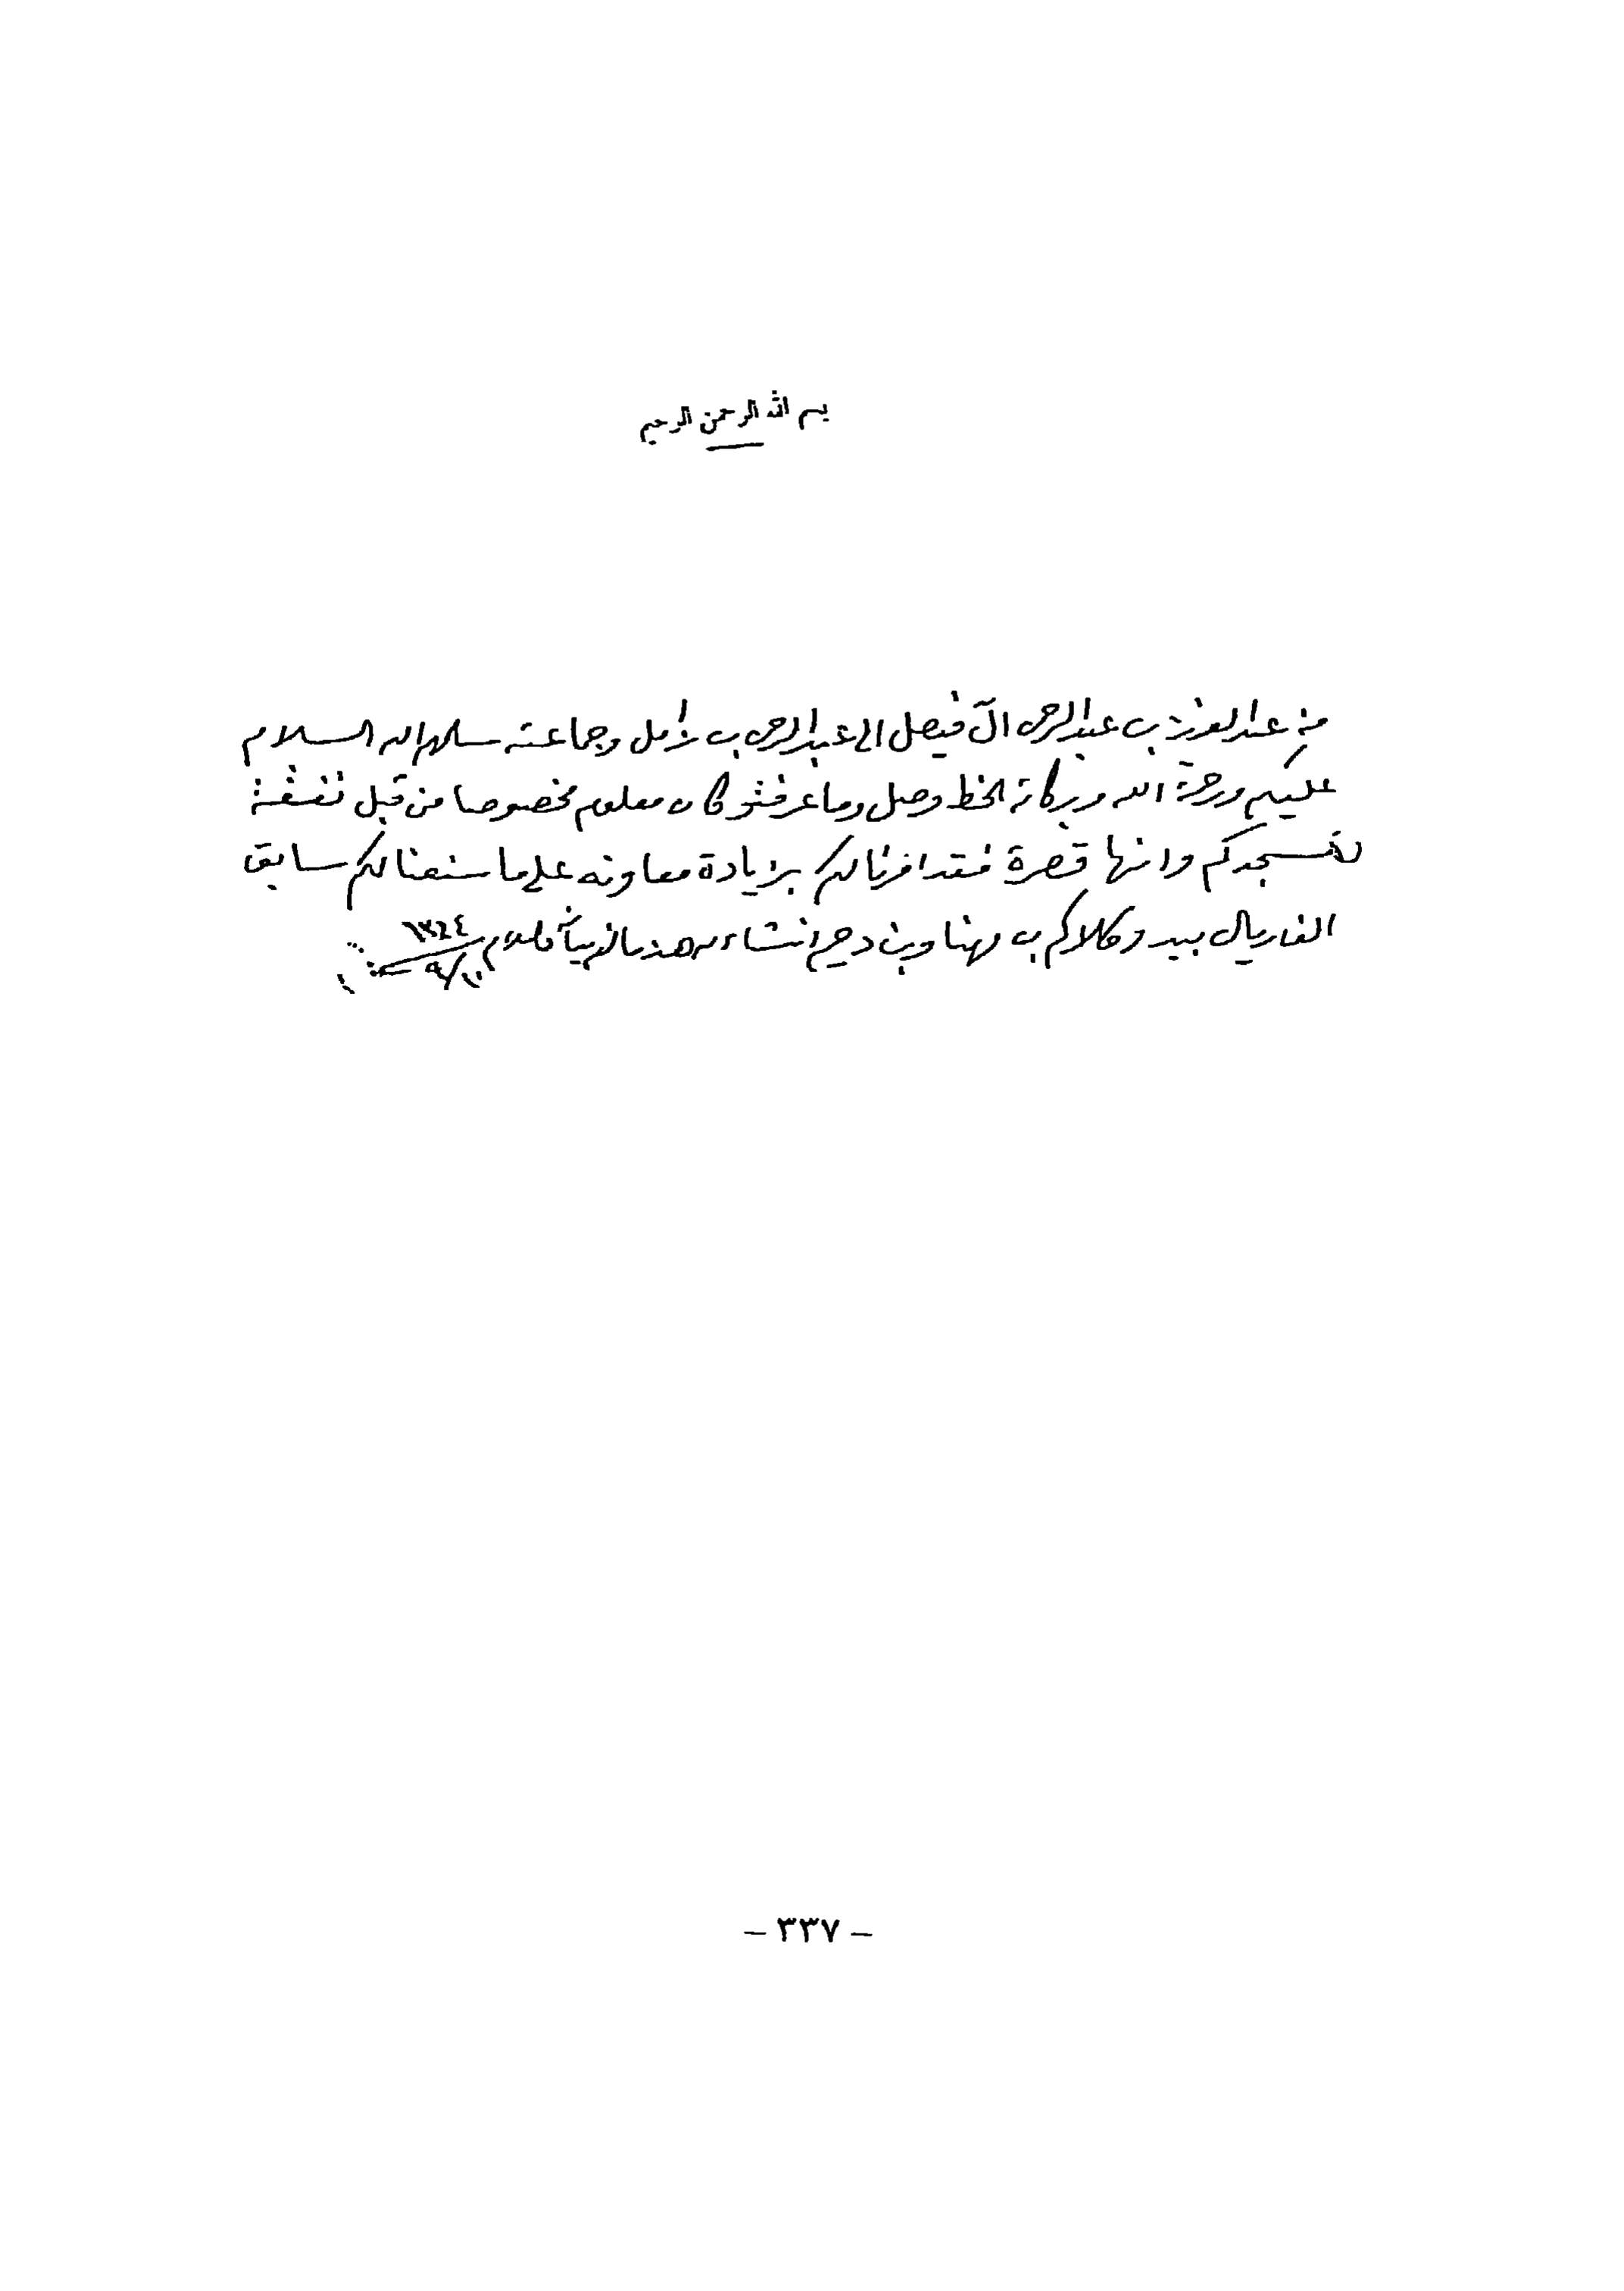 بسم الله الرحمن الرحيم
من عبدالعزيز بن عبدالرحمن آل فيصل الى عبدالرحمن بن زامل وجماعته سلمهم الله السلام
عليكم ورحمة الله وبركاته الخط وصل وما عرفتو كان معلوم مخصوصا من قبل نفقة
مسجدكم وانها قصرة فقد امرنا لكم بزيادة معاونه على ما سنعنا لكم سابق
الفاريال بيد وكلاكم بن مهنا وبن دحيم انشاء الله هذا مالزم بيانه والسلام
١٣٤٤
- ٣٣٧ -